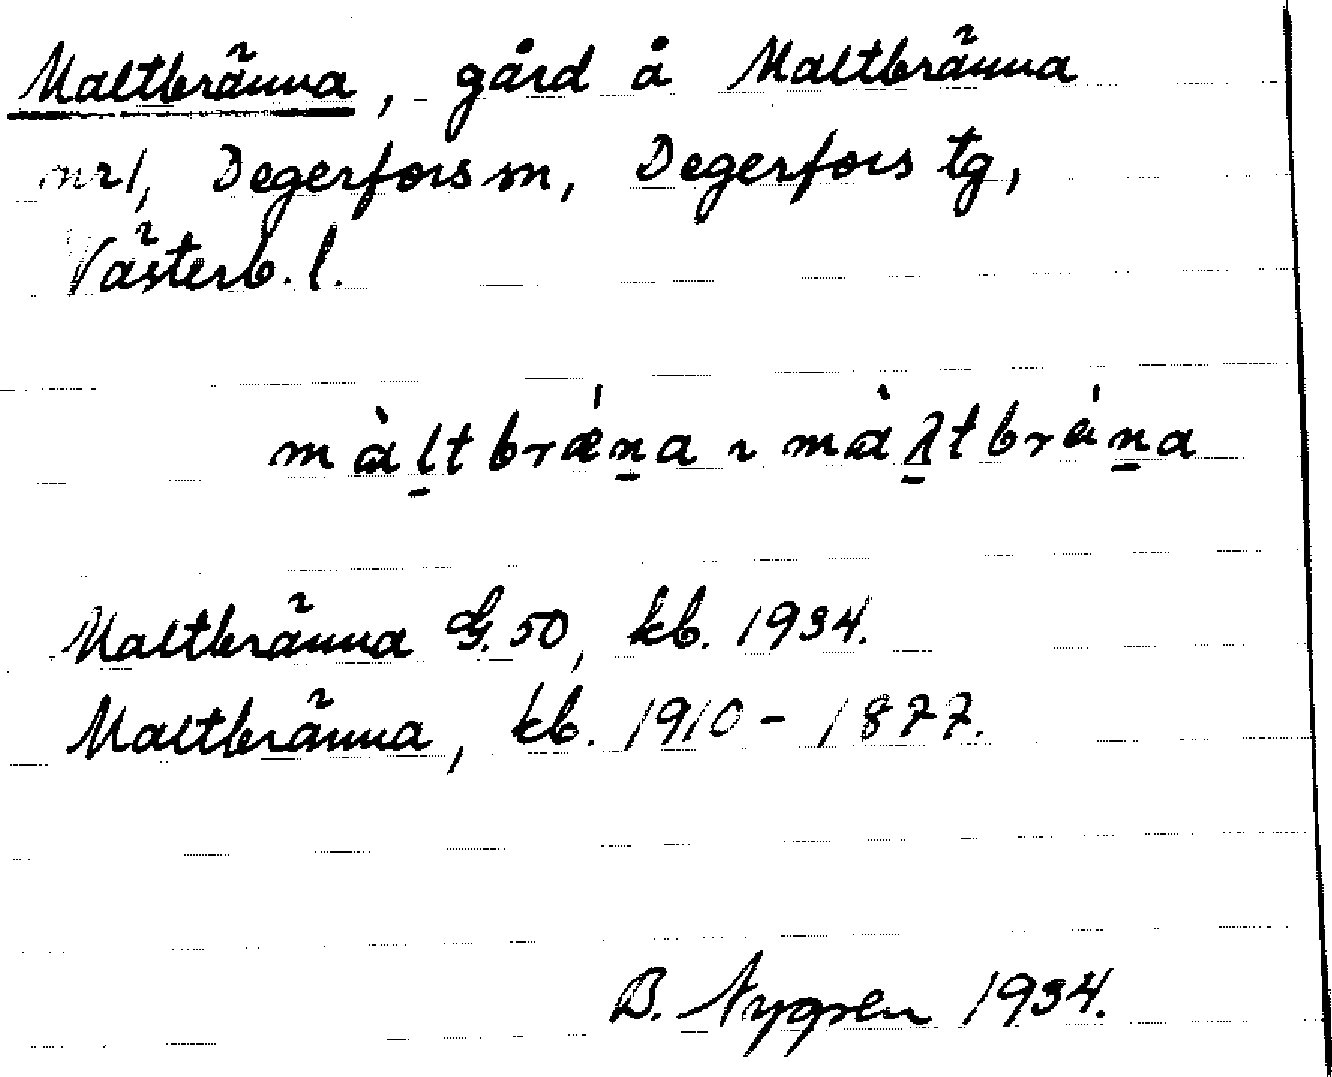 Maltbränna, gård å Maltbränna
nr 1, Degerfors sn, Degerfors tg,
Västerb. l.
màl̠tbrǽn̠a ~ màλ̠tbrǽn̠a
Maltbränna G. 50, kb. 1934.
Maltbränna, kb. 1910 - 1877.
B. Nygren 1934.